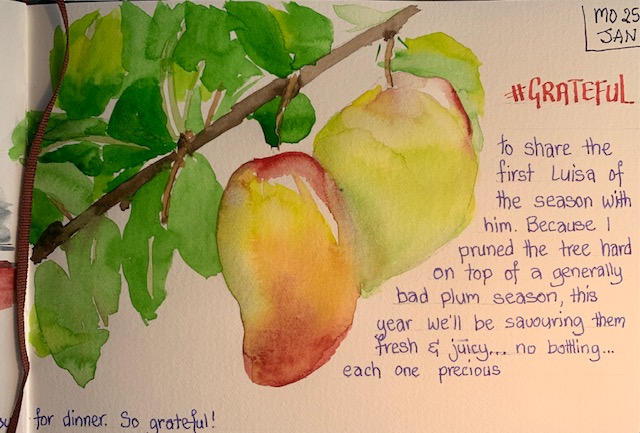 MO 25
JAN
#GRATEFUL
to share the
first Luisa of
the season with
him. Because I
pruned the tree hard
on top of a generally
bad plum season, this
year we'll be savouring them
fresh & juicy... no bottling...
each one precious
for dinner. So grateful!